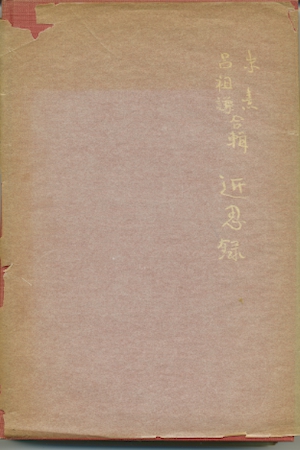 朱熹
呂祖謙合輯
近思錄